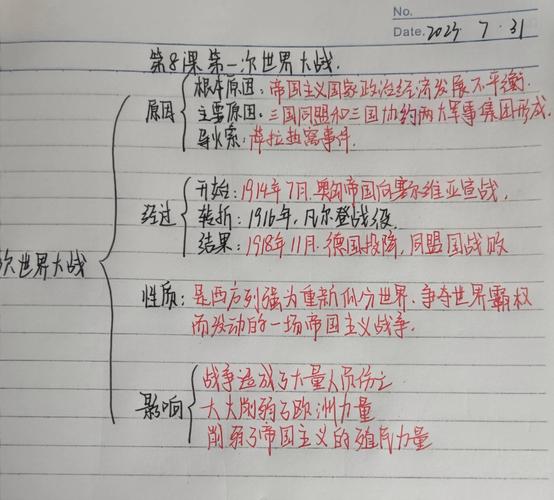 No.
Date. 2023 7 31
第8课 第一次世界大战.
原因
根本原因: 帝国主义国家政治经济发展不平衡.
主要原因: 三国同盟和三国协约两大军事集团形成.
导火索: 萨拉热窝事件.
次世界大战
经过
开始: 1914年7月.奥匈帝国向塞尔维亚宣战.
转折: 1916年,凡尔登战役.
结果: 1918年11月.德国投降,同盟国战败
性质: 是西方列强为重新瓜分世界.争夺世界霸权
而发动的一场帝国主义战争.
影响
战争造成了大量人员伤亡
大大削弱了欧洲力量
削弱了帝国主义的殖民力量